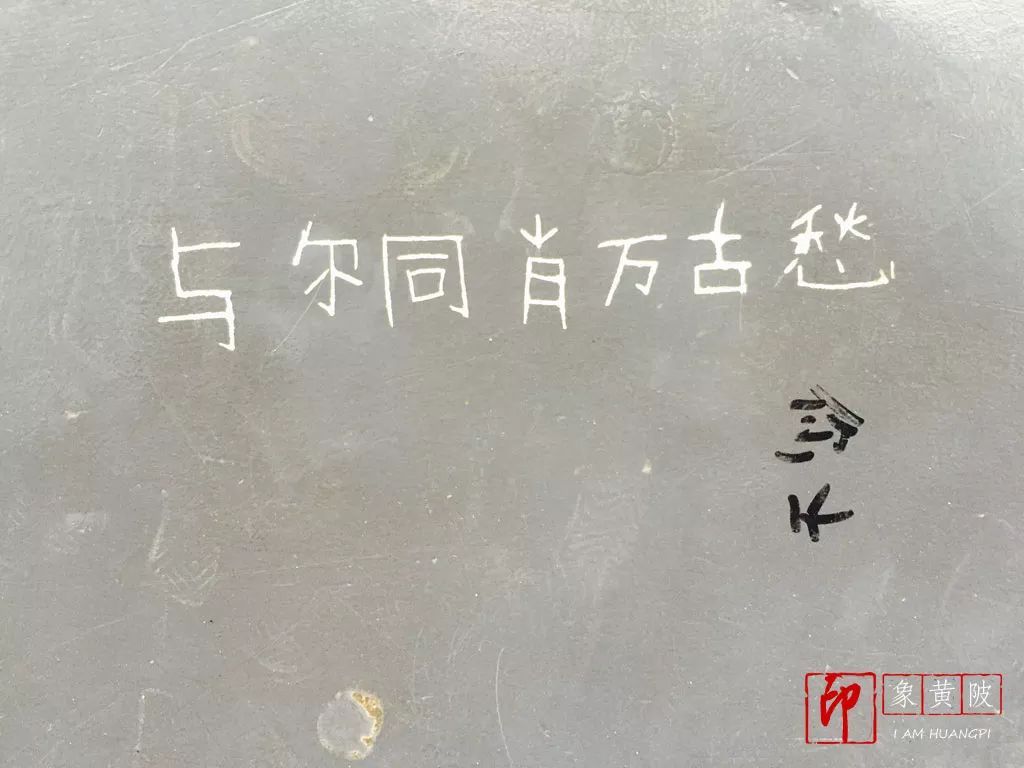 与尔同肖万古愁
印象黄陂
I AM HUANGPI